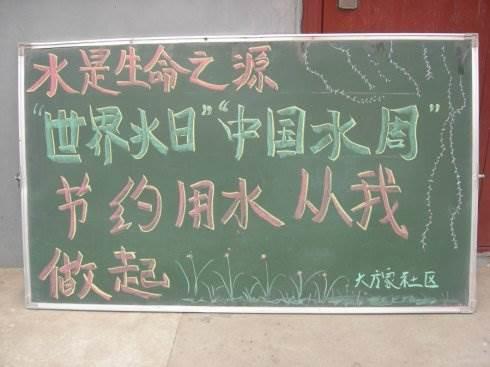 水是生命之源
“世界水日”“中国水周”
节约用水 从我
做起
大方家社区